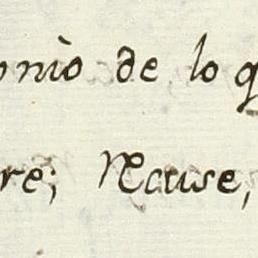 onio de lo q
re; Nause,